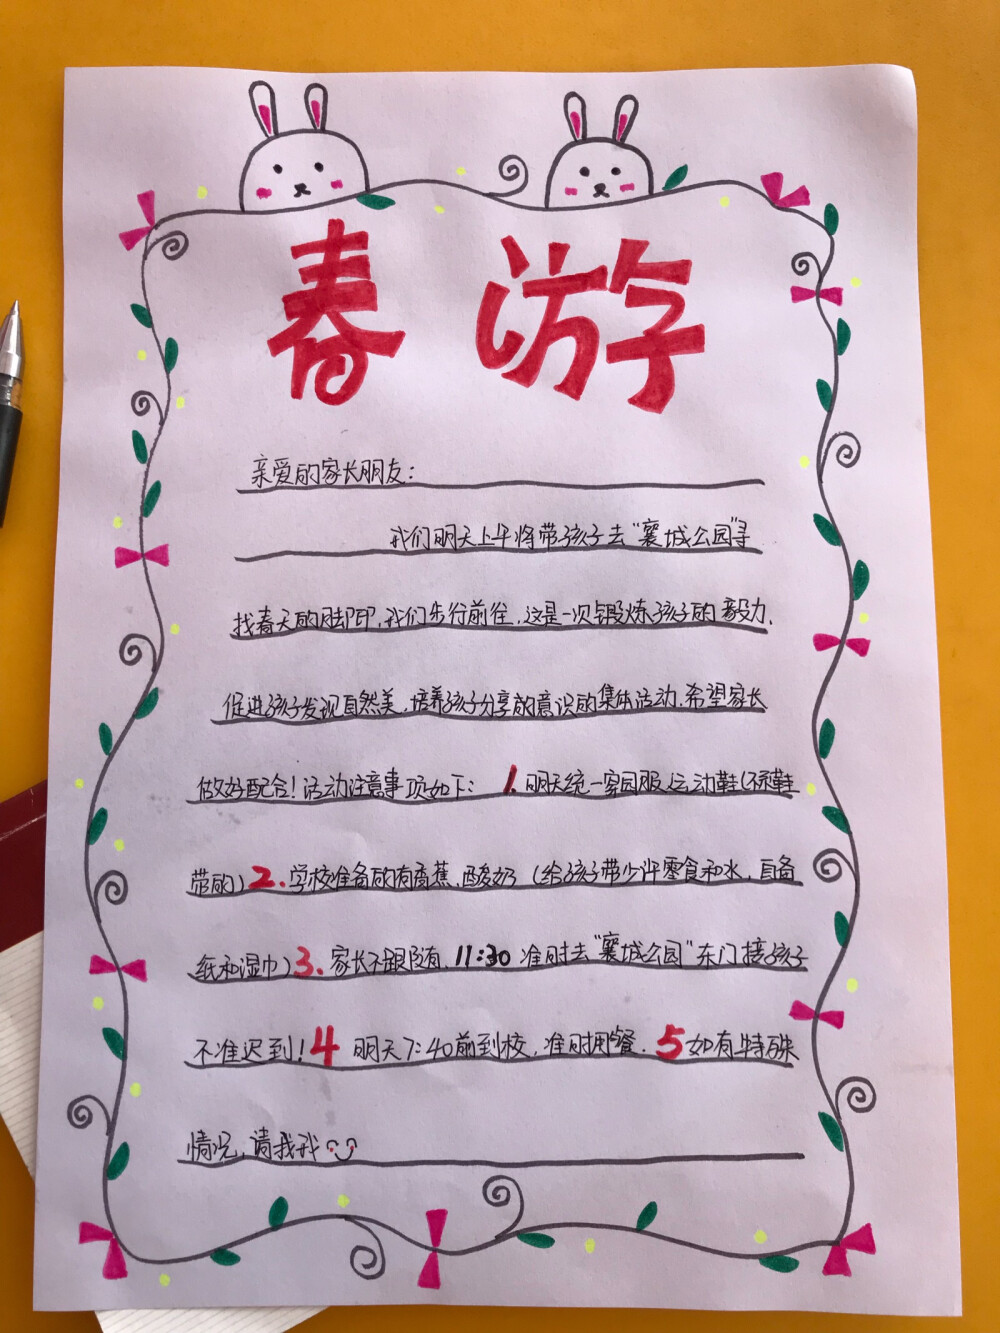 春游
亲爱的家长朋友：
我们明天上午将带孩子去“襄城公园”寻
找春天的脚印，我们步行前往，这是一次锻炼孩子的毅力、
促进孩子发现自然美，培养孩子分享的意识的集体活动，希望家长
做好配合！活动注意事项如下： 1.明天统一穿园服、运动鞋（不系鞋
带的）2.学校准备的有香蕉、酸奶（给孩子带少许零食和水，自备
纸和湿巾）3.家长不跟随，11:30准时去“襄城公园”东门接孩子
不准迟到！4 明天7:40前到校，准时用餐. 5如有特殊
情况，请找我